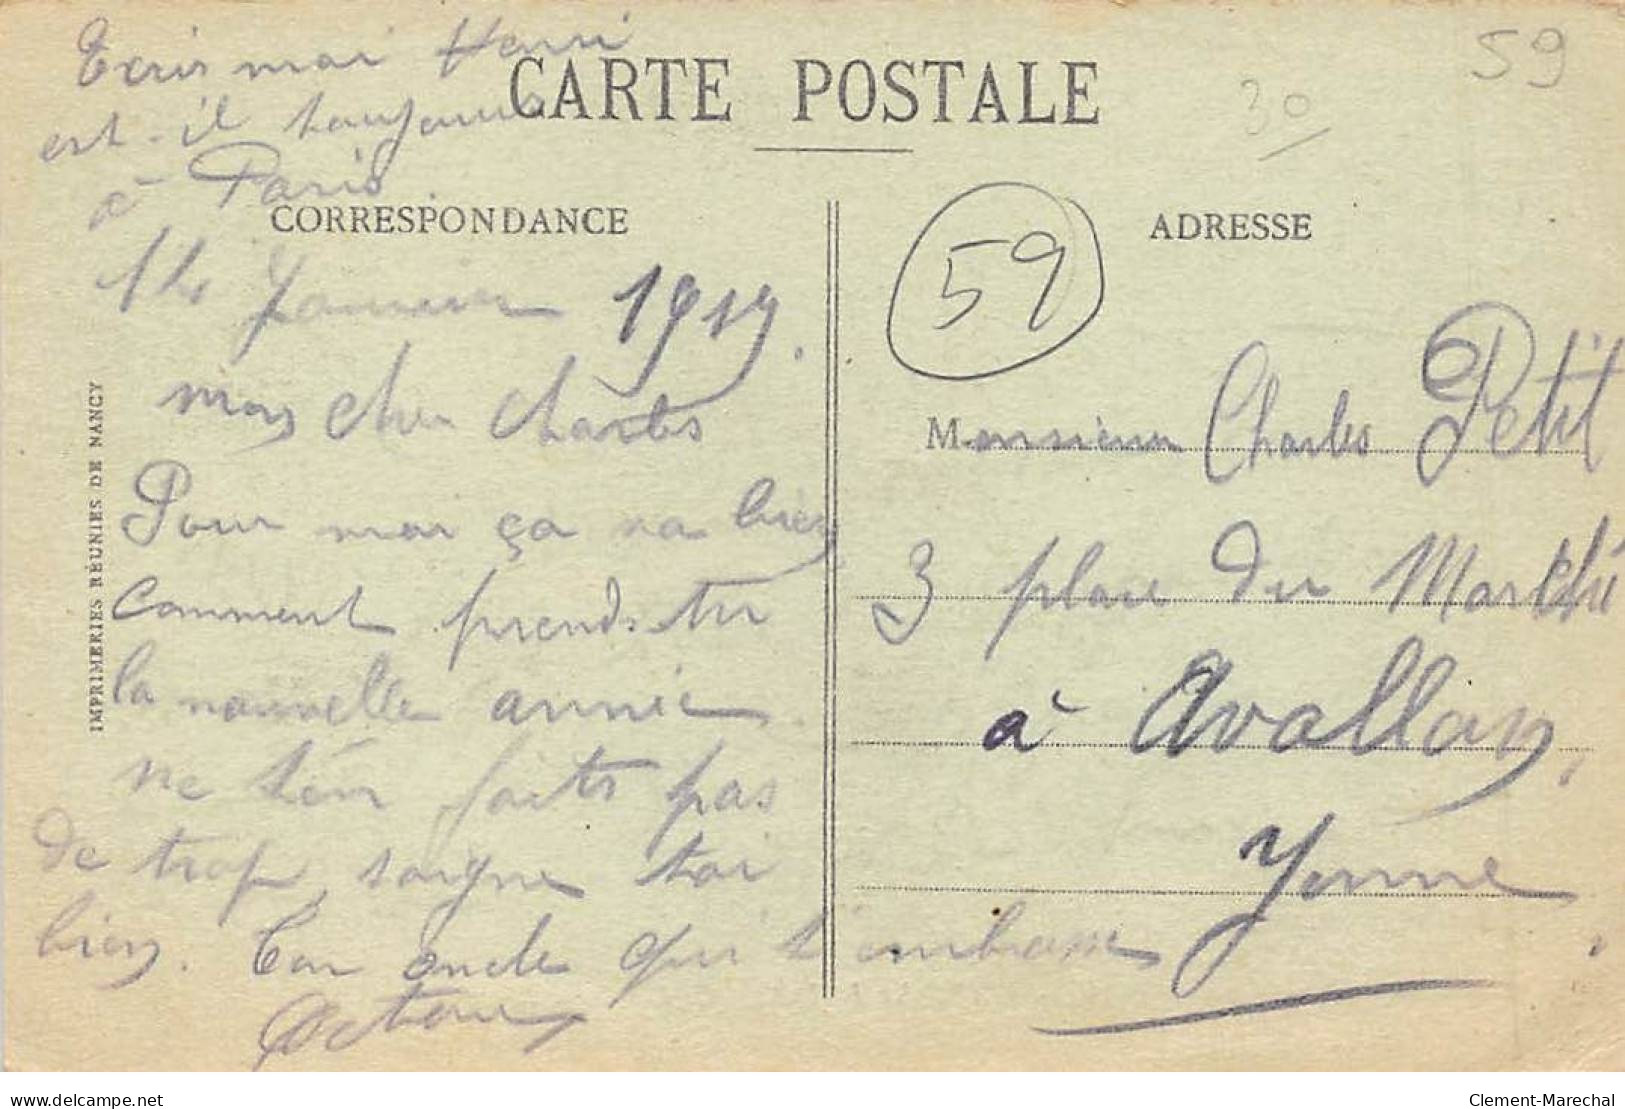 Ecris moi Henri
est-il toujours
à Paris
CARTE POSTALE
30
59
CORRESPONDANCE
59
ADRESSE
14 Janvier 1919.
mon cher Charles
Pour moi ça va bien
comment prends-tu
la nouvelle année
ne t'en faits pas
de trop, soigne toi
bien. Ton oncle qui t'embrasse
Monsieur Charles Petit
3 place du Marché
à Avallon,
Yonne.
IMPRIMERIES RÉUNIES DE NANCY
delcampe.net
Clement-Marechal